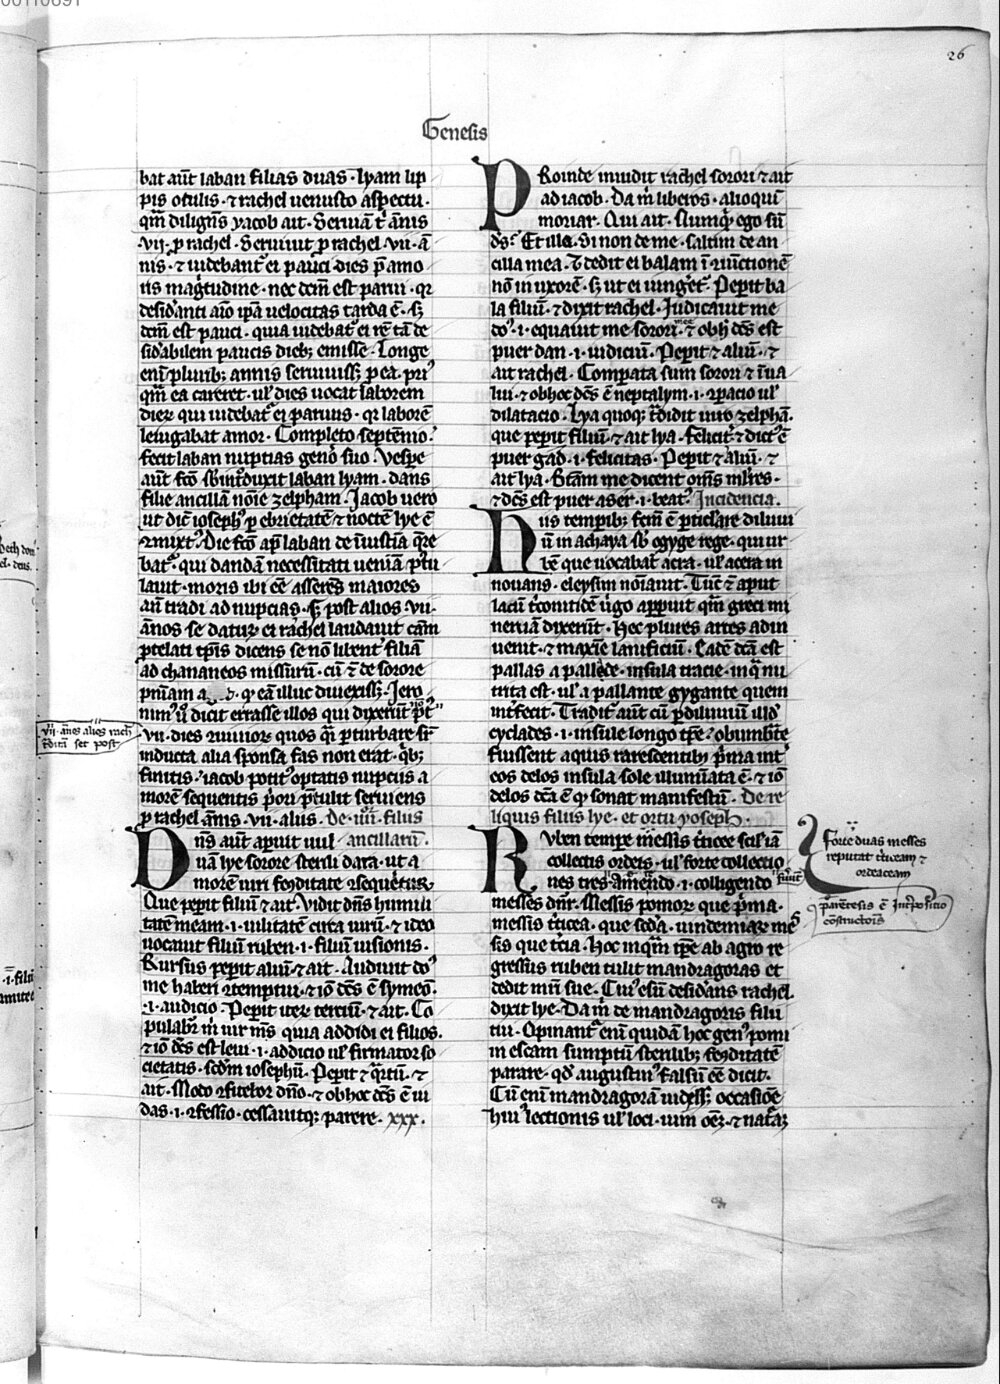 26
Genesis
bat aūt laban filias duas · lyam lip
pis oculis · ⁊ rachel uenusto aspectu ·
qm̄ diligēs yacob ait · Seruiā t̄ ānis
vii · ꝑ rachel · Seruiuit ꝑ rachel · vii · ā
nis · ⁊ uidebant᷑ ei pauci dies p̄ amo
ris magͥtudine · nec dc̄m est parui · qꝛ
desidͣanti aīo ip̄a uelocitas tarda ē · sꝫ
dc̄m est pauci · quia uidebat᷑ ei rē tā de
sidͣabilem paucis diebꝫ emisse · Longe
enī pluribꝫ annis seruiuissꝫ ꝑ ea · pͥ
qm̄ ea careret · ul᷑ dies uocat laborem
dieꝝ qui uidebat᷑ ei paruus · qꝛ laborē
leuigabat amor · Completo septēnio ·
fecit laban nuptias genͦo suo · Vespe
aūt fc̄o sbͥntͦduxit laban lyam · dans
filie ancillā noīe zelpham · Iacob uero
ut dic̄ iosephꝰ ꝑ ebrietatē ⁊ noctē lye ē
ꝯmixtꝰ · Die fc̄o ap̄ laban de iniustia q̄re
bat᷑ · qui dandā necessitati ueniam
lauit · moris ibi eē asserēs maiores
an̄ tradi ad nuptias · sꝫ post alios · vii ·
ānos se daturꝝ ei rachel laudauit cām
dicens se nō libent᷑ filiā
ad chananeos missurū · cū ⁊ de sorore
pn̄iam qꝫ eā illuc diuexissꝫ · Iero
nimꝰ ū dicit errasse illos qui dixerūt pꝰt
vii · dies minoreꝫ quos qͥ ꝑturbare sr̄
inducta alia sponsa fas non erat · qͥbꝫ
finitis iacob potitꝰ optatis nuptiis a
morē sequentis pͥori p̄tulit seruiens
ꝑ rachel ānis · vii · aliis · De · iiii · filiis
Dn̄s aūt aꝑuit uul ancillarū ·
uā lye sorore sterili data · ut a
morē uiri feditate ꝯsequeret᷑ ·
Que peꝑit filiū ⁊ ait · Vidit dn̄s humili
tatē meam · i · uilitatē circa uirū · ⁊ ideo
uocauit filiū ruben · i · filiū uisionis ·
Rursus peꝑit aliū ⁊ ait · Audiuit dꝰ
me haberi ꝯtemptui · ⁊ iō dc̄s ē symeō ·
· i · auditio · Peꝑit iteꝝ terciū · ⁊ ait · Co
pulabit᷑ m̄ uir mꝰs quia addidi ei filios ·
⁊ iō dc̄s est leui · i · additio ul᷑ firmator so
cietatis · scd̄m iosephū · Peꝑit ⁊ qͣrtū · ⁊
ait · Modo ꝯfitebor dn̄o · ⁊ ob hoc dc̄s ē iu
das · i · ꝯfessio · cessauitqꝫ parere · xxx ·
PRoinde inuidit rachel sorori ⁊ ait
ad iacob · Da m̄ liberos · alioquī
moriar · Cui ait · Nūquid ego sū
dꝰs · Et illa · Si non de me · saltim de an
cilla mea · ⁊ dedit ei balam ī ꝯiūctionē
nō in uxorē · sꝫ ut ei iunget᷑ · Peꝑit ba
la filiū · ⁊ dixit rachel · Iudicauit me
dꝰ · i · equauit me sorori mee · ⁊ ob h̄ dc̄s est
puer dan · i · iudiciū · Peꝑit ⁊ aliū · ⁊
ait rachel · Comparata sum sorori ⁊ īua
lui · ⁊ ob hoc dc̄s ē neptalym · i · ꝯparacio ul᷑
dilatacio · Lya quoqꝫ tͣdidit uiro zelphā ·
que peꝑit filiū · ⁊ ait lya · feliciͭ ⁊ dictꝰ ē
puer gad · i · felicitas · Peꝑit ⁊ aliū · ⁊
ait lya · Beatam me dicent om̄s ml̄res ·
⁊ dc̄s est puer aser · i · beatꝰ · Incidencia ·
Hiis temꝑibꝫ fcm̄ ē ꝑticlare diluui
ū in achaya sb̄ ogyge rege · qui ur
bē que uocabat᷑ acta · ul᷑ acera in
nouans · eleysim noīauit · Tūc ⁊ aput
lacū tͥtonidē ūgo apꝑuit qm̄ greci mi
neruā dixerūt · Hec plures artes adin
uenit · ⁊ maxīe lanificiū · Eadē dc̄a est
pallas a pallēde · insula tracie · in qͣ nu
trita est · ul᷑ a pallante gygante quem
int᷑fecit · Tradit᷑ aūt cū ꝑ diluuiū illd̄
cyclades · i · insule longo tp̄e obumbͣte
fuissent aquis rarescentibꝫ pͥma int᷑
eos delos insula sole illumīata ē · ⁊ iō
delos dc̄a ē qꝫ sonat manifestū · De re
liquis filiis lye · et ortu yoseph ·
RVben tempe messis tͥticee scil iā
collectis ordeis · ul᷑ forte collectio
nes tres · Amēndo · i · colligendo fiūt
messes dn̄r · Messis pomoꝝ que pͥma ·
messis tͥticea · que scd̄a · uindemiaꝝ mes
sis que tͥcia · Hoc inqͣm tp̄e ab agro re
gressus ruben tulit mandragoras et
dedit mr̄i sue · Cuiꝰ esū desidͣans rachel ·
dixit lye · Da m̄ de mandragoris filii
tui · Opinant᷑ enī quidā hoc genꝰ pomi
in escam sumptū sterilibꝫ feditatē
parare · qd̄ augustinꝰ falsū eē dicit ·
Cū enī mandragorā uidissꝫ occasiōe
huiꝰ lectionis ul᷑ loci · uim eiꝰ · ⁊ natͣꝫ
vii · ānos alios rach
tͣditā sꝫ post
Forte duas messes
reputat tͥticeam ⁊
ordeaceam
parētesis ē īt᷑positio
constructōis